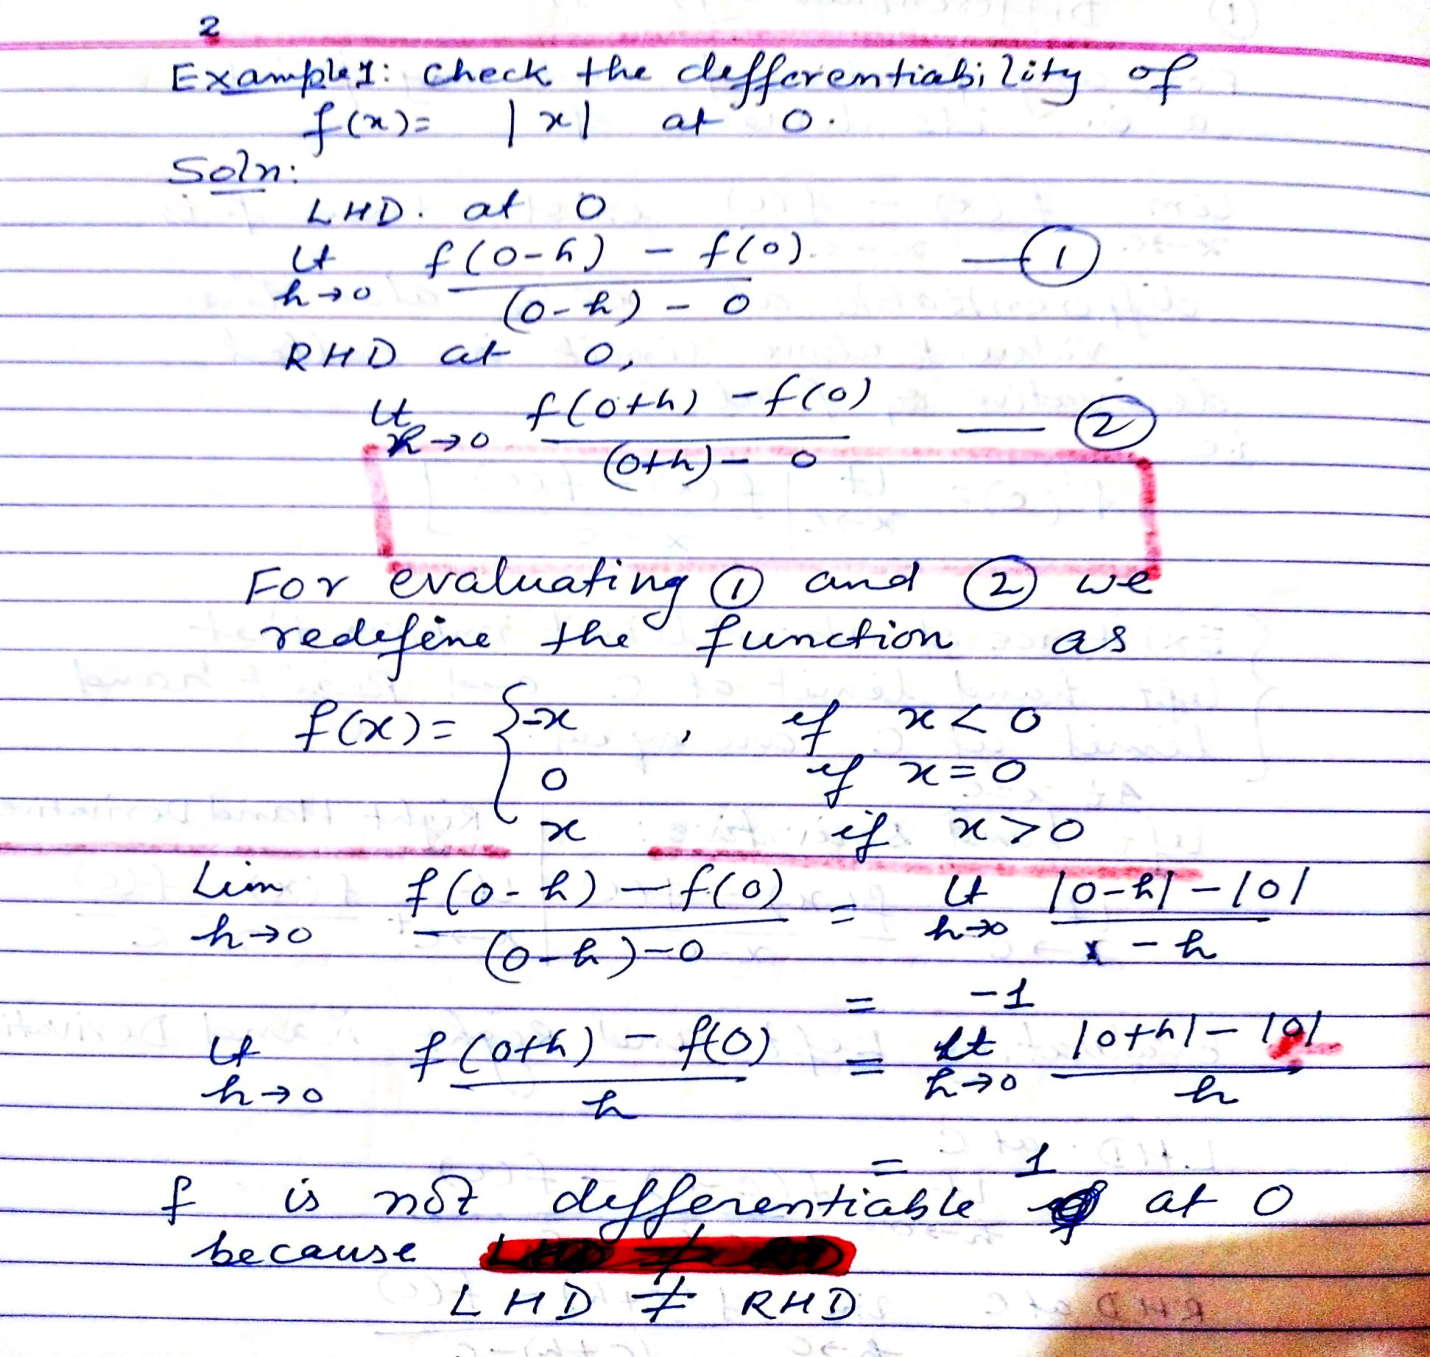 2
Example 1: Check the differentiability of
f(x) = |x| at 0.
Soln:
LHD. at 0
Lt h→0 f(0-h) - f(0) / (0-h) - 0 — ①
RHD at 0,
Lt h→0 f(0+h) - f(0) / (0+h) - 0 — ②
For evaluating ① and ② we
redefine the function as
f(x) = { -x , if x < 0
0 if x = 0
x if x > 0
Lim h→0 f(0-h) - f(0) / (0-h) - 0 = Lt h→0 |0-h| - |0| / - h
= -1
Lt h→0 f(0+h) - f(0) / h = Lt h→0 |0+h| - |0| / h
= 1
f is not differentiable at 0
because LHD ≠ RHD
LHD ≠ RHD